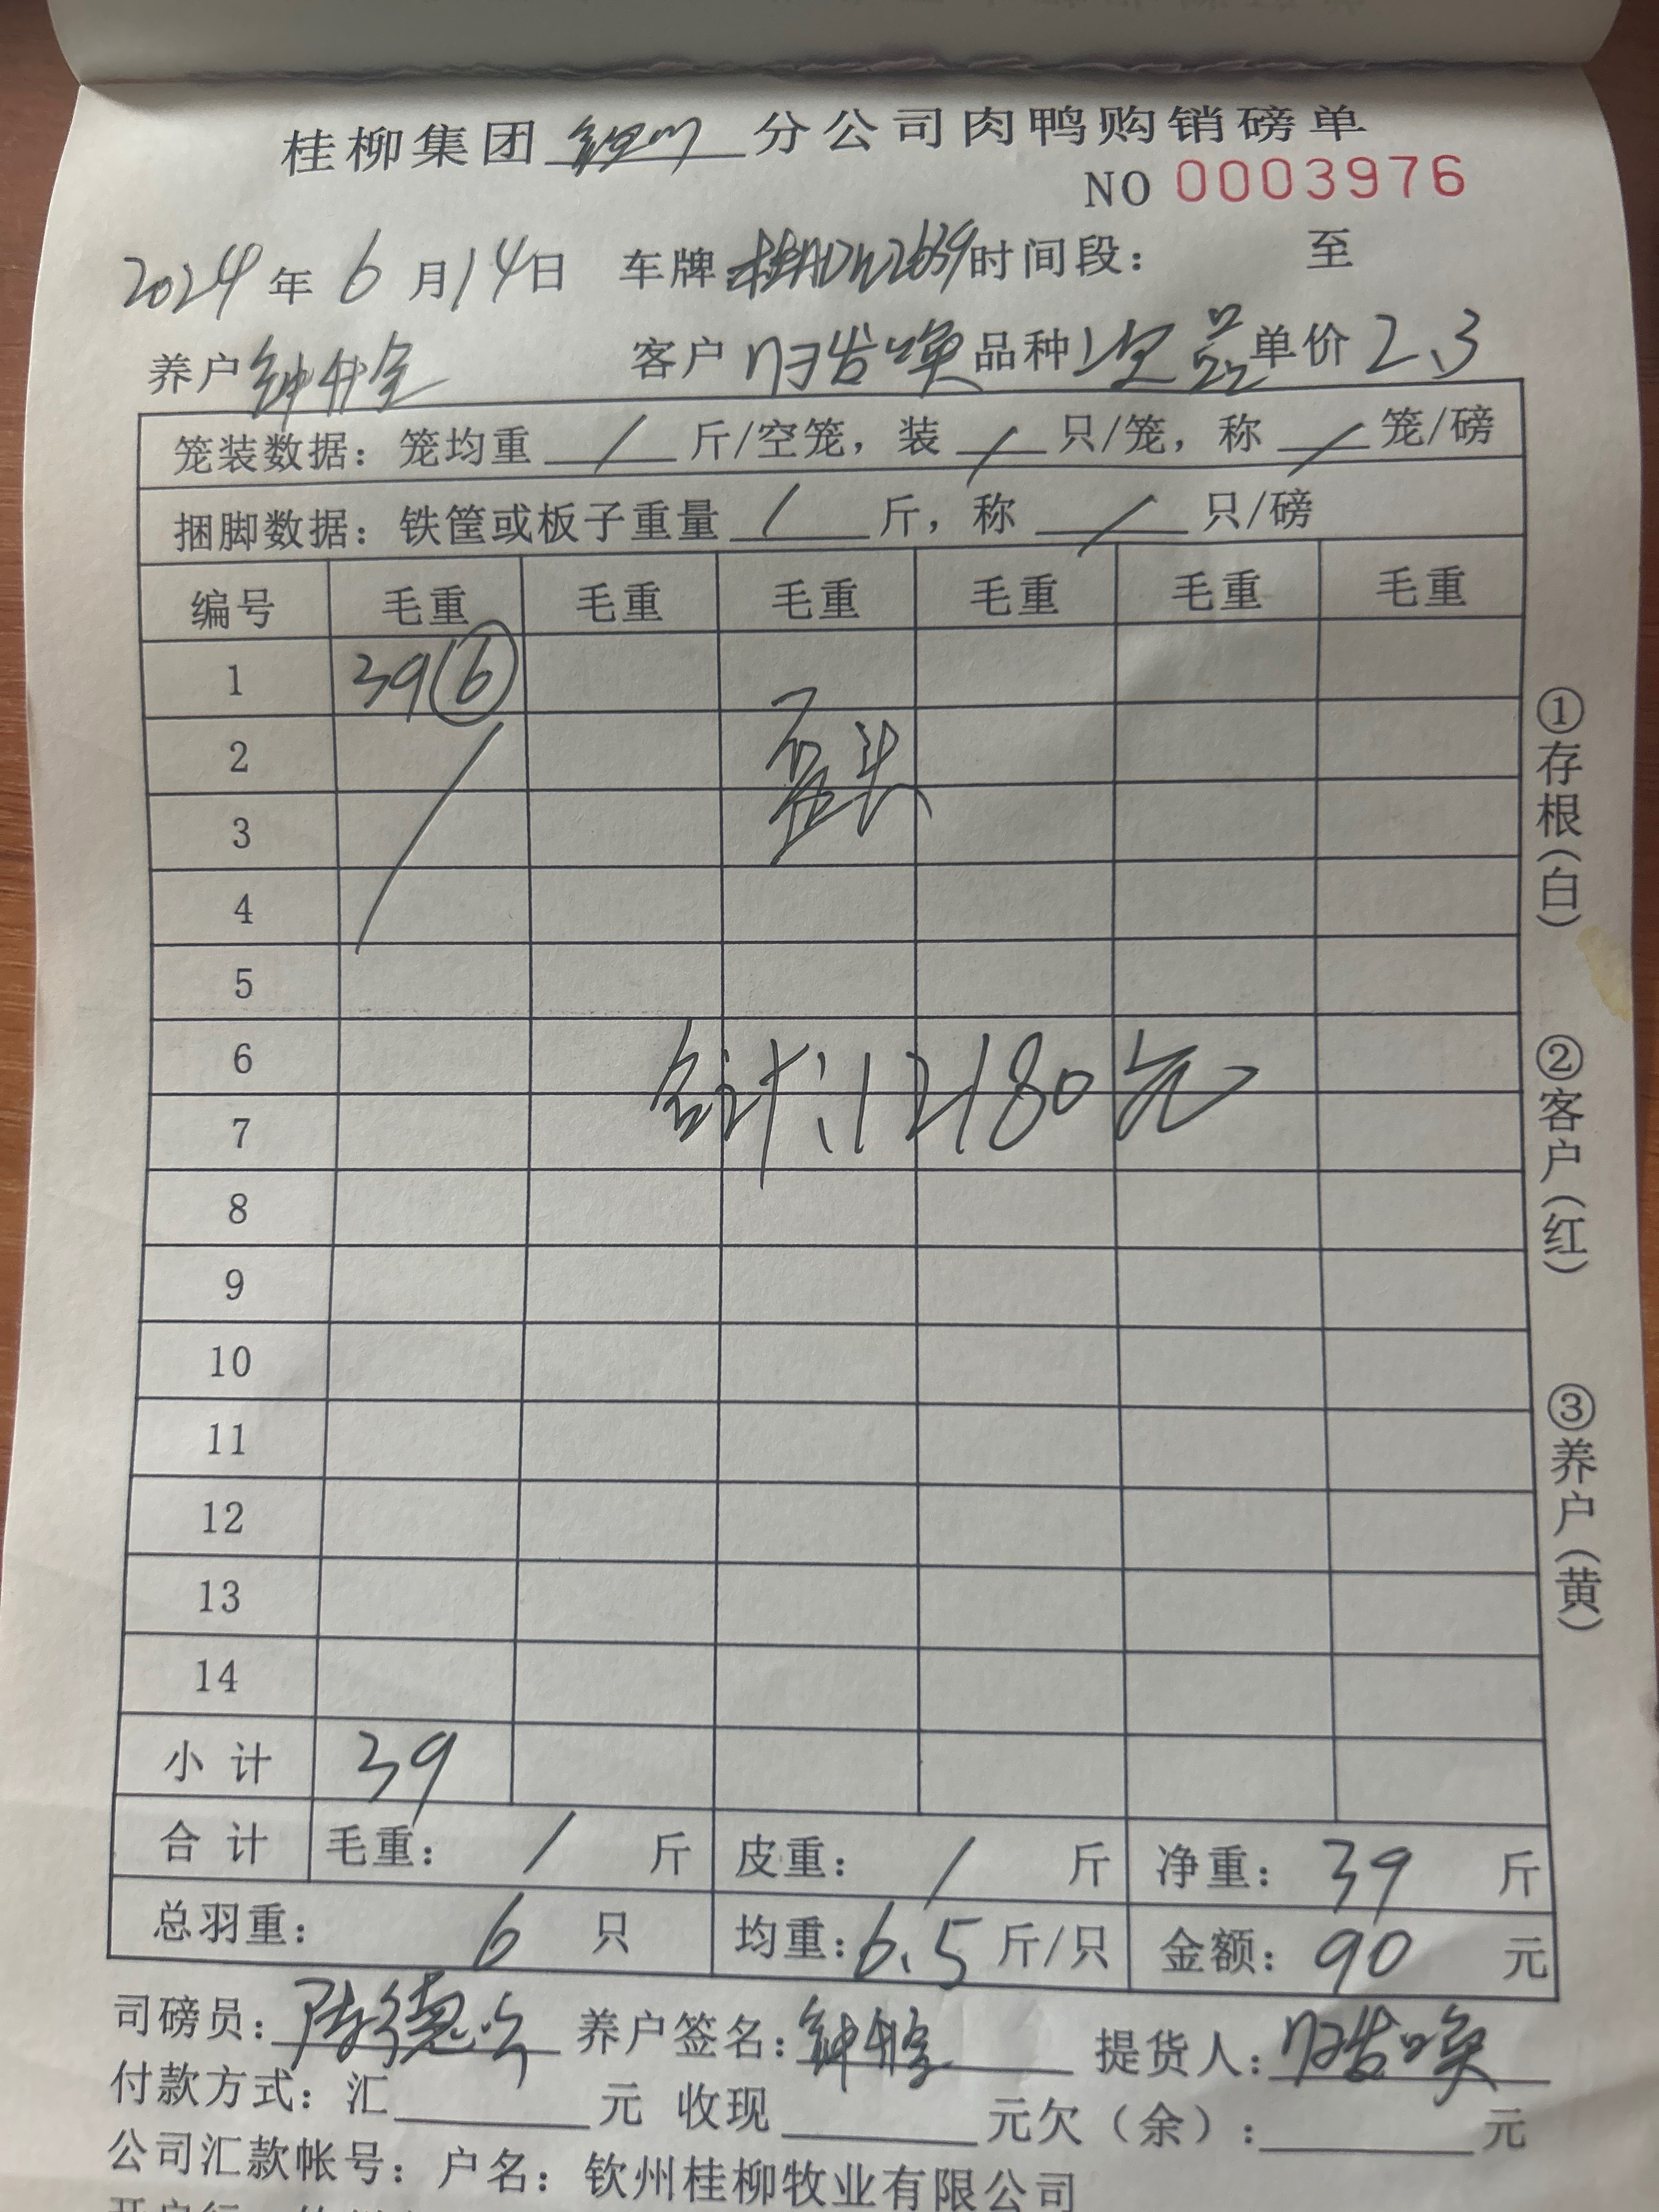 桂柳集团 钦州 分公司肉鸭购销磅单
NO 0003976
2024 年 6 月 14 日 车牌 桂ADW2639 时间段： 至
养户 钟 客户 品种 次品 单价 2.3
笼装数据：笼均重 / 斤/空笼，装 / 只/笼，称 / 笼/磅
捆脚数据：铁筐或板子重量 / 斤，称 / 只/磅
编号 毛重 毛重 毛重 毛重 毛重 毛重
1 39 ⑥
2
3
4
5
6
合计：12180元
7
8
9
10
11
12
13
14
小计 39
合计 毛重： / 斤 皮重： / 斤 净重： 39 斤
总羽重： 6 只 均重：6.5 斤/只 金额：90 元
司磅员：陈德 养户签名：钟 提货人：
付款方式：汇 元 收现 元欠（余）： 元
公司汇款帐号：户名：钦州桂柳牧业有限公司
①存根（白）
②客户（红）
③养户（黄）